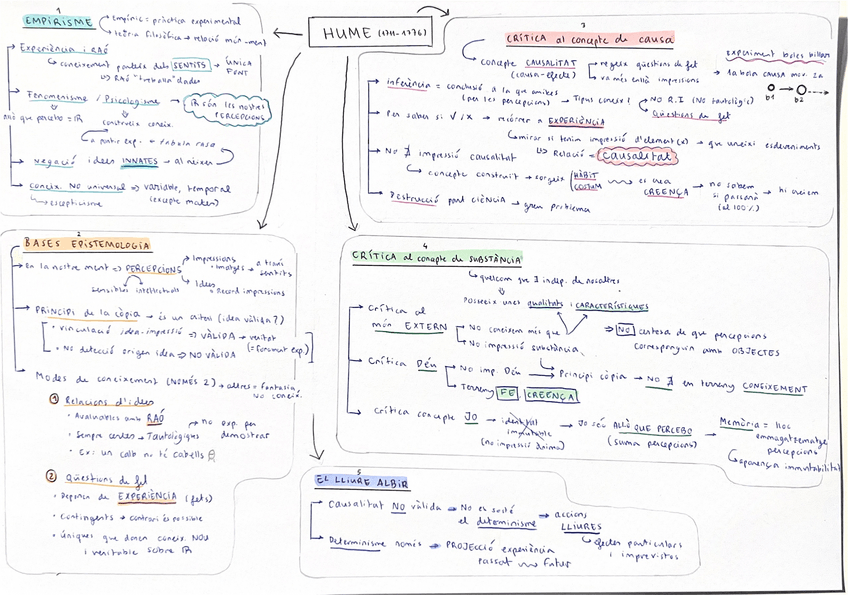 HUME (1711-1776)
1
EMPIRISME
empíric = pràctica experimental
teoria filosòfica → relació món-ment
Experiència i RAÓ
coneixement parteix dels SENTITS → ÚNICA FONT
RAÓ "treballa" dades
Fenomenisme / Psicologisme →
són les nostres PERCEPCIONS
allò que percebo =
construeix coneix.
a partir exp. = tabula rasa
negació idees INNATES → al néixer
coneix. NO universal → variable, temporal
(excepte mates)
→ escepticisme
2
BASES EPISTEMOLOGIA
En la nostre ment => PERCEPCIONS
Impressions
· imatges → a través sentits
Idees
= Record impressions
sensibles intel·lectuals
PRINCIPI de la còpia → és un criteri (idea vàlida?)
· vinculació idea-impressió => VÀLIDA → veritat
(= fonament exp.)
· No detecció origen idea => NO VÀLIDA
Modes de coneixement (NOMÉS 2) → altres = fantasia
NO coneix.
1 Relacions d'idees
· Avaluables amb RAÓ
→ no exp. per demostrar
· Sempre certes → Tautològiques
· Ex: un calb no té cabells
2 Qüestions de fet
· Depenen de EXPERIÈNCIA (fets)
· Contingents → contrari és possible
· Úniques que donen coneix. NOU
i veritable sobre
3
CRÍTICA al concepte de causa
concepte CAUSALITAT
(causa-efecte)
regeix qüestions de fet
va més enllà impressions
experiment boles billar
→ 1a bola causa mov. 2a
b1 b2
Inferència = conclusió a la que arribes
(per les percepcions) → Tipus coneix.?
NO R.I (No tautològic)
Qüestions de fet
Per saber si √/x → recórrer a EXPERIÈNCIA
mirar si tenim impressió d'element(x) → que uneixi esdeveniments
Relació = CAUSALITAT
No ∄ impressió causalitat
concepte construït → sorgeix HÀBIT COSTUM
es crea CREENÇA → no sabem si passarà (al 100%) → hi creiem
Destrucció part ciència → gran problema
4
CRÍTICA al concepte de SUBSTÀNCIA
quelcom que ∃ indep. de nosaltres
Posseeix unes qualitats i CARACTERÍSTIQUES
Crítica al món EXTERN
No coneixem més que
No impressió substància
=> NO certesa de que percepcions
corresponguin amb OBJECTES
Crítica Déu
No imp. Déu → Principi còpia → No ∃ en terreny CONEIXEMENT
Terreny FE CREENÇA
Crítica concepte JO → identitat immutable
(no impressió ànima)
→ JO sóc ALLÒ QUE PERCEBO
(suma percepcions)
→ Memòria = lloc
emmagatzematge
percepcions
aparença immutabilitat
5
EL LLIURE ALBIR
Causalitat NO vàlida → No es sosté
el determinisme → accions LLIURES
Efectes particulars
i imprevistos
Determinisme només → PROJECCIÓ experiència
passat → futur